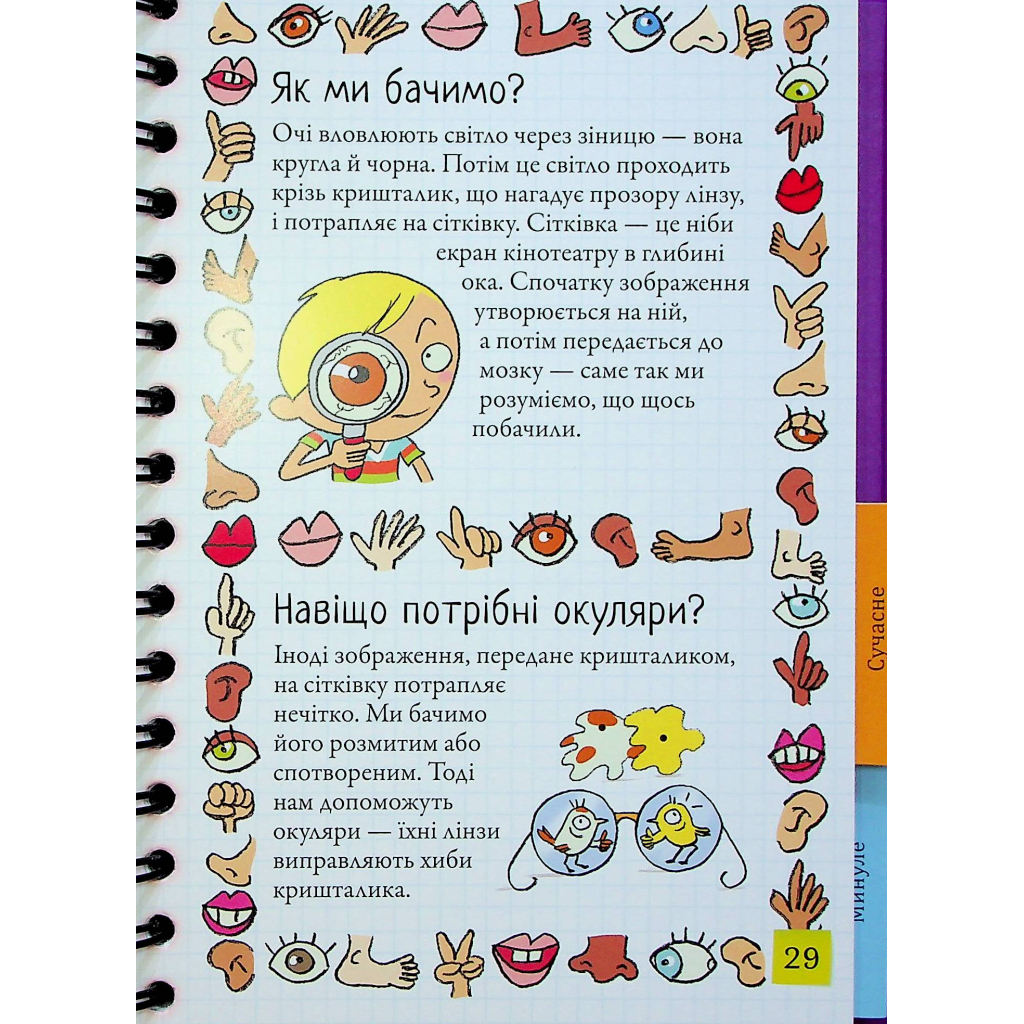 Як ми бачимо?
Очі вловлюють світло через зіницю — вона
кругла й чорна. Потім це світло проходить
крізь кришталик, що нагадує прозору лінзу,
і потрапляє на сітківку. Сітківка — це ніби
екран кінотеатру в глибині
ока. Спочатку зображення
утворюється на ній,
а потім передається до
мозку — саме так ми
розуміємо, що щось
побачили.
Навіщо потрібні окуляри?
Іноді зображення, передане кришталиком,
на сітківку потрапляє
нечітко. Ми бачимо
його розмитим або
спотвореним. Тоді
нам допоможуть
окуляри — їхні лінзи
виправляють хиби
кришталика.
29
Сучасне
Минуле